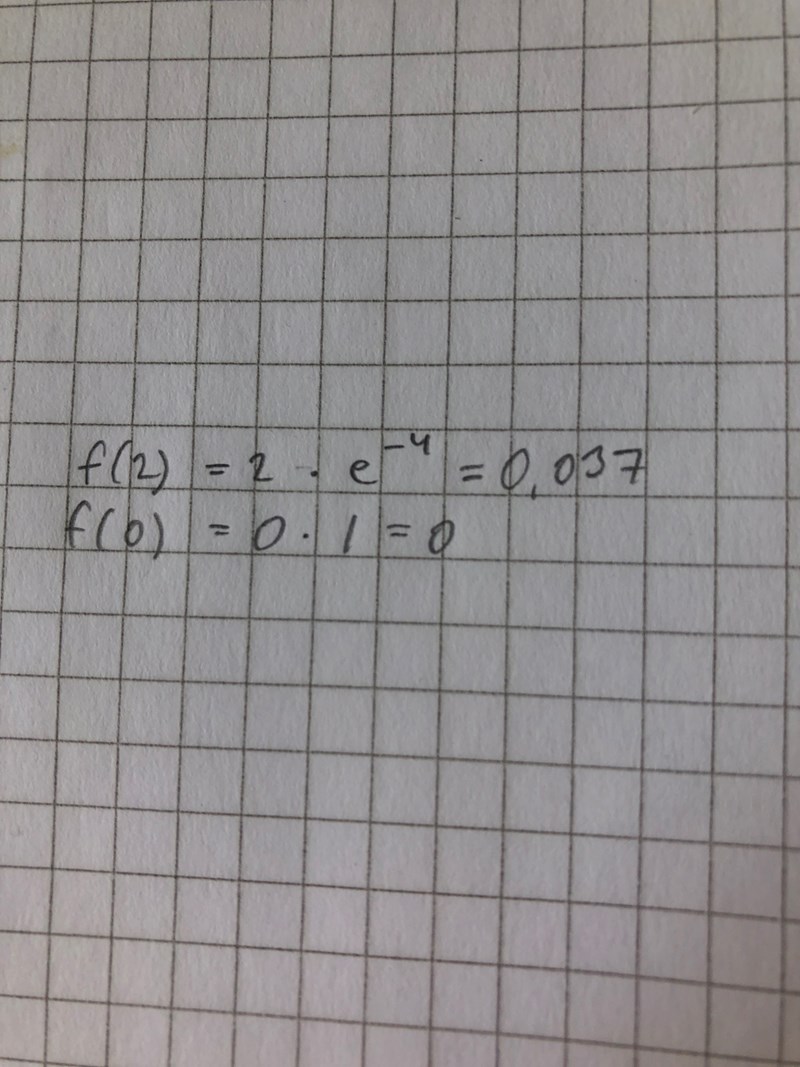 f(2) = 2 · e⁻⁴ = 0,037
f(0) = 0 · 1 = 0